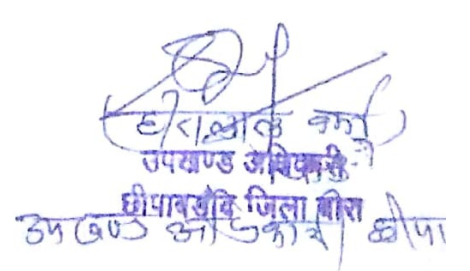 (हीरालाल वर्मा)
उपखण्ड अधिकारी
छीपाबड़ौद जिला बारां
उपखण्ड अधिकारी छीपा